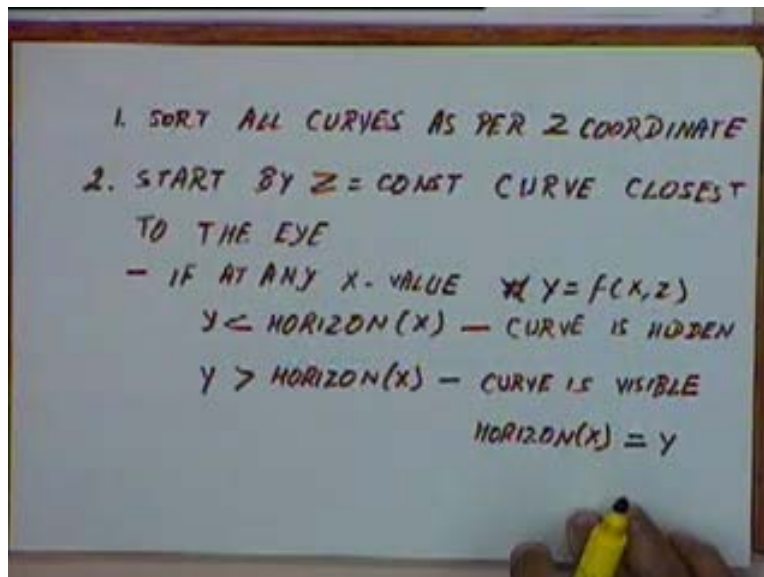 1. SORT ALL CURVES AS PER Z COORDINATE
2. START BY Z = CONST CURVE CLOSEST
TO THE EYE
- IF AT ANY X-VALUE Y = f(X,Z)
Y < HORIZON(X) - CURVE IS HIDDEN
Y > HORIZON(X) - CURVE IS VISIBLE
HORIZON(X) = Y